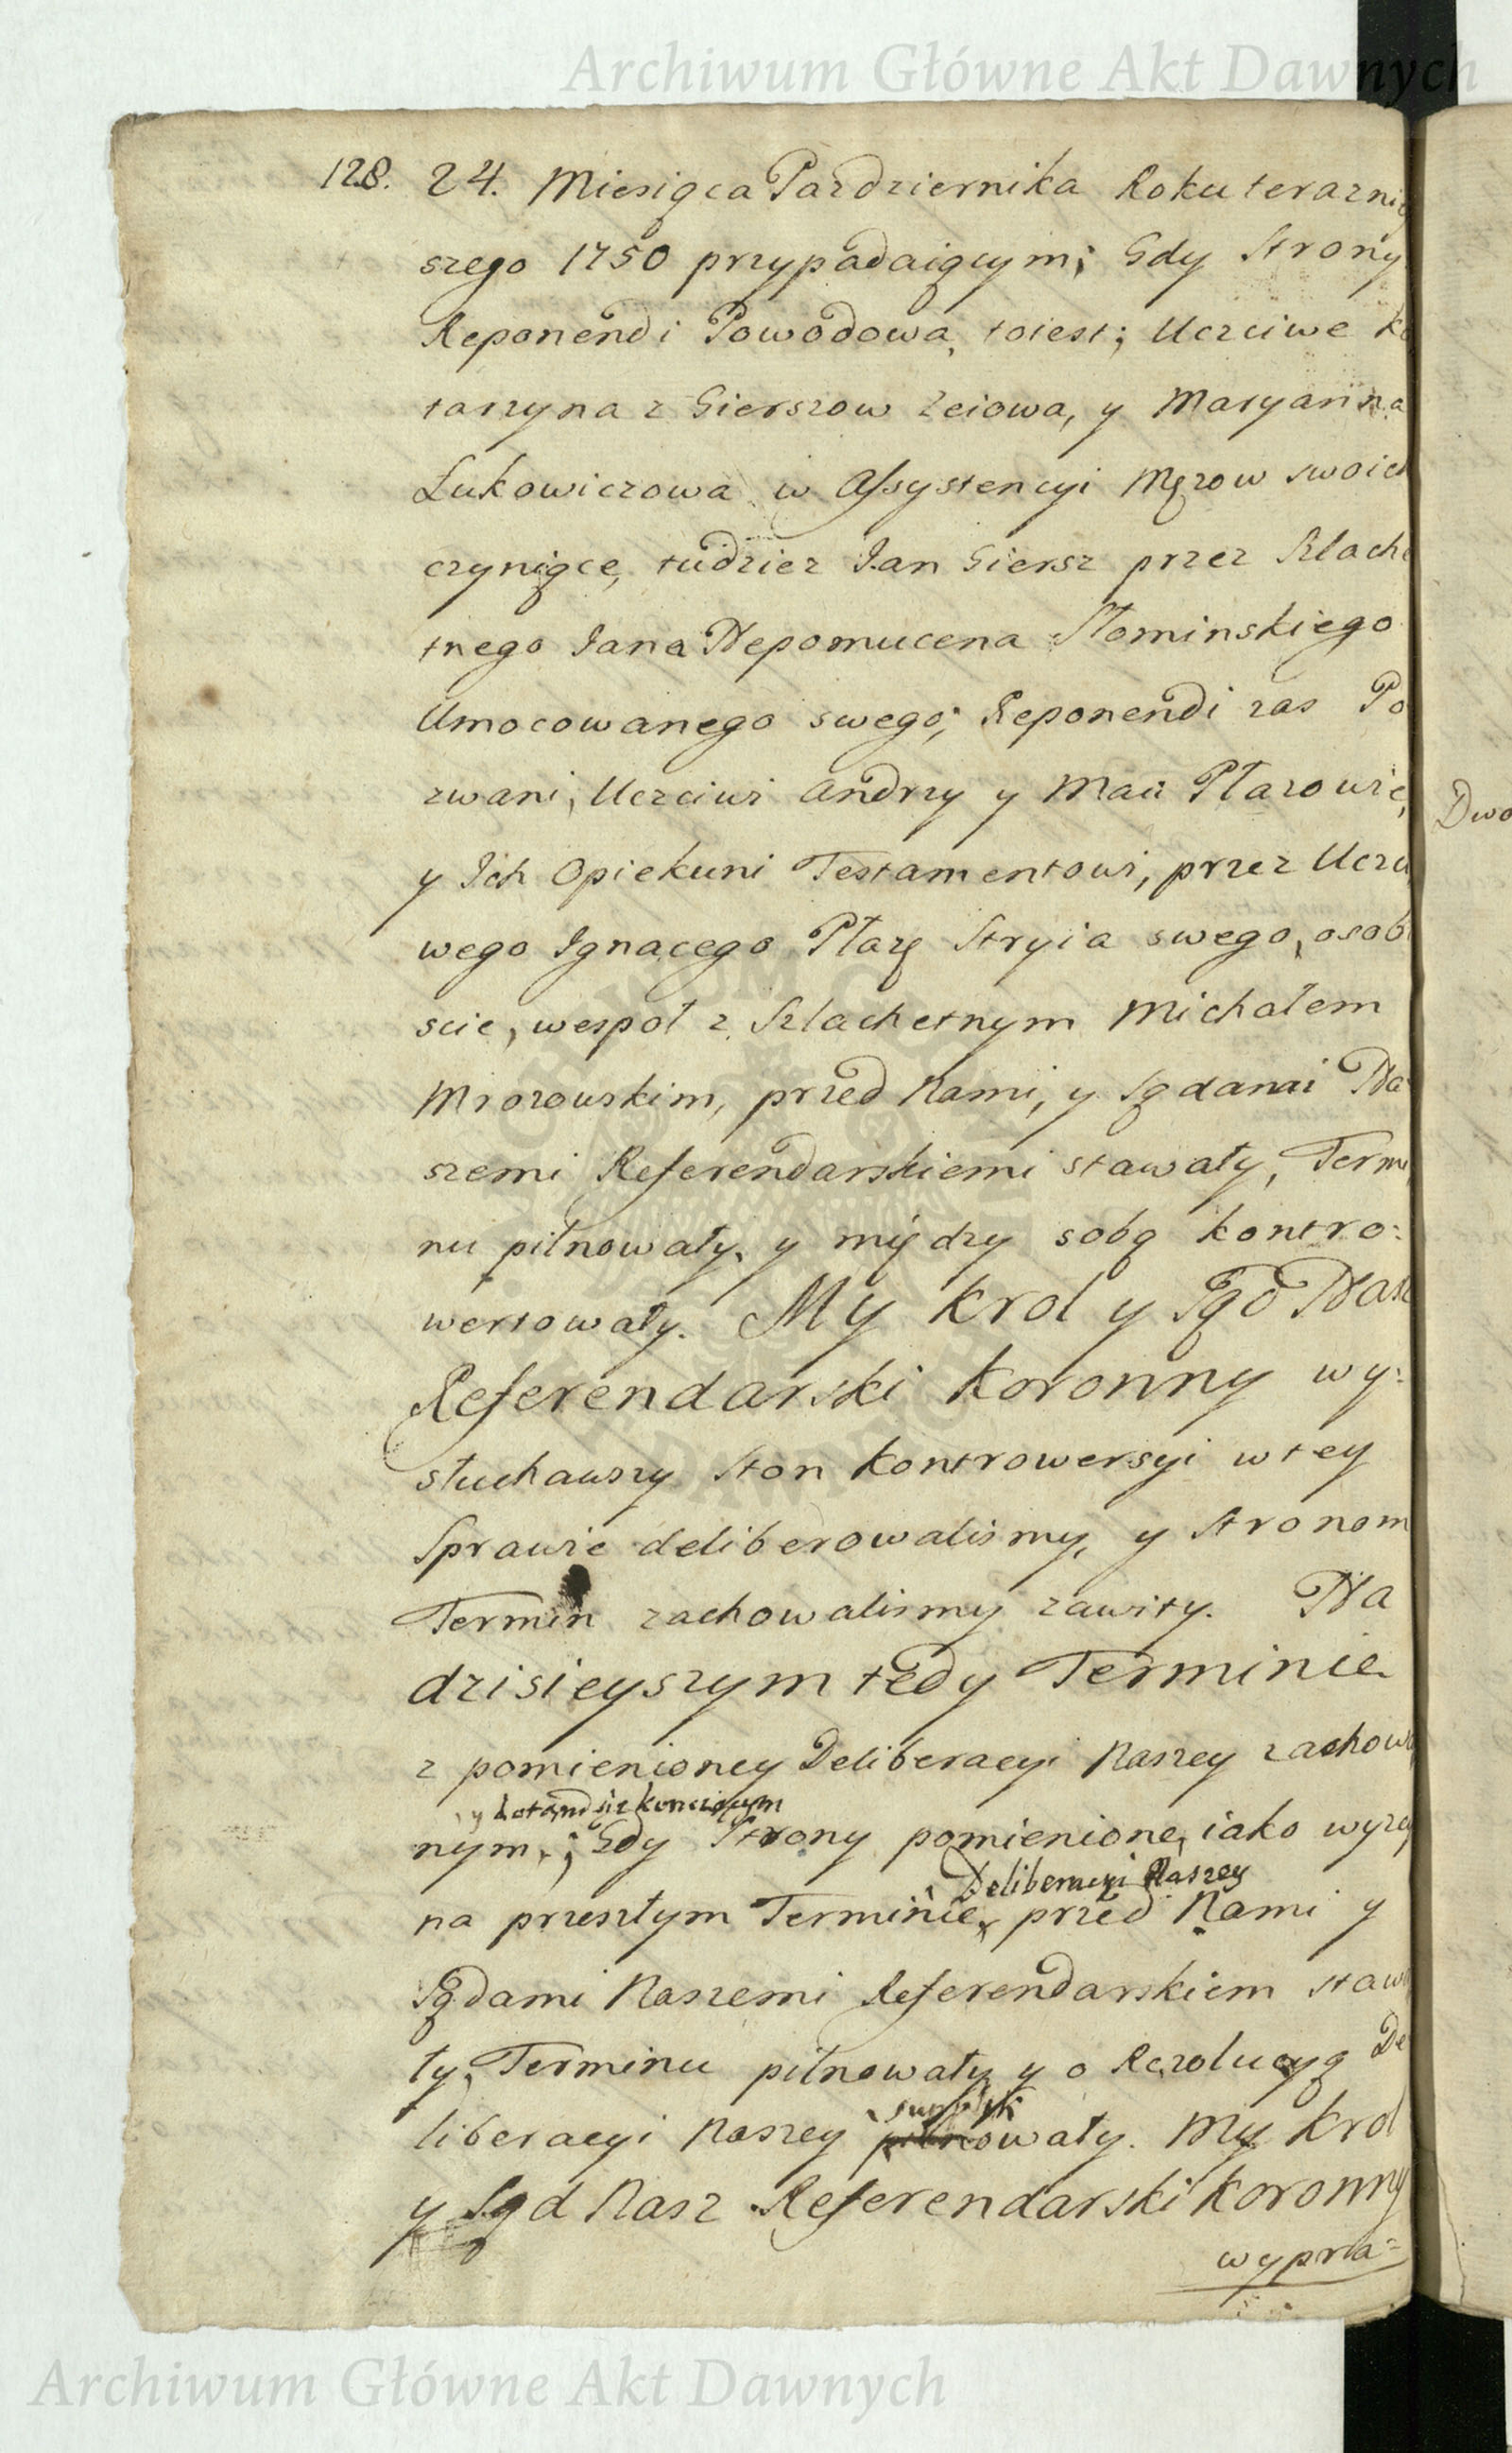 Archiwum Główne Akt Dawnych
128. 24. Miesiąca Pazdziernika Roku terazniy
szego 1750 przypadaiącym; Gdy Strony
Reponendi Powodowa, toiest; Uczciwe Ka
tarzyna z Gierszow Zeiowa, y Maryanna
Łukowiczowa w Assystencyi Męzow swoich
czyniące, tudziez Jan Giersz przez Szlache
tnego Jana Nepomucena Słominskiego
Umocowanego swego; Reponendi zas Po
zwani, Uczciwi Andrzy y Maci Płazowie,
y Jch Opiekuni Testamentowi, przez Uczci
wego Jgnacego Płazę Stryia swego, osobi
scie, wespoł z Szlachetnym Michałem
Mrozowskim, przed Nami, y Sądami Na
szemi Referendarskiemi stawały, Termi
nu pilnowały, y między sobą kontro:
wertowały. My Krol y Sąd Nasz
Referendarski Koronny wy:
słuchawszy Ston Kontrowersyi w tey
Sprawie deliberowalismy, y Stronom
Termin zachowalismy zawity. Na
dzisieyszym tedy Terminie
z pomienioney Deliberacyi Naszey zachowa
y dotąd się kończącym
nym; Gdy Strony pomienione, iako wyzey
Deliberacyi Naszey
na przeszłym Terminie, przed Nami y
Sądami Naszemi Referendarskiem stawa
ły, Terminu pilnowały y o Rezolucyą De
liberacyi Naszey pilnowały. My Krol
y Sąd Nasz Referendarski Koronny
wypra=
Dwo
Archiwum Główne Akt Dawnych